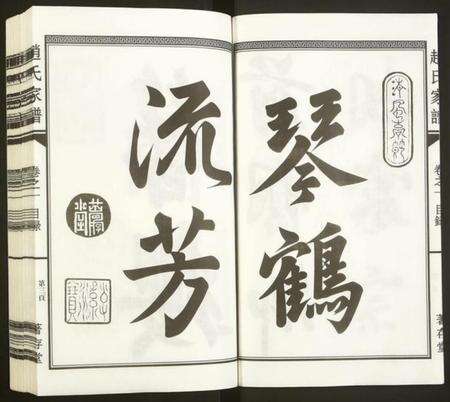 趙氏家譜
卷之一
目錄
著存堂
琴鶴
流芳
趙氏家譜
卷之一
目錄
第二頁
著存堂